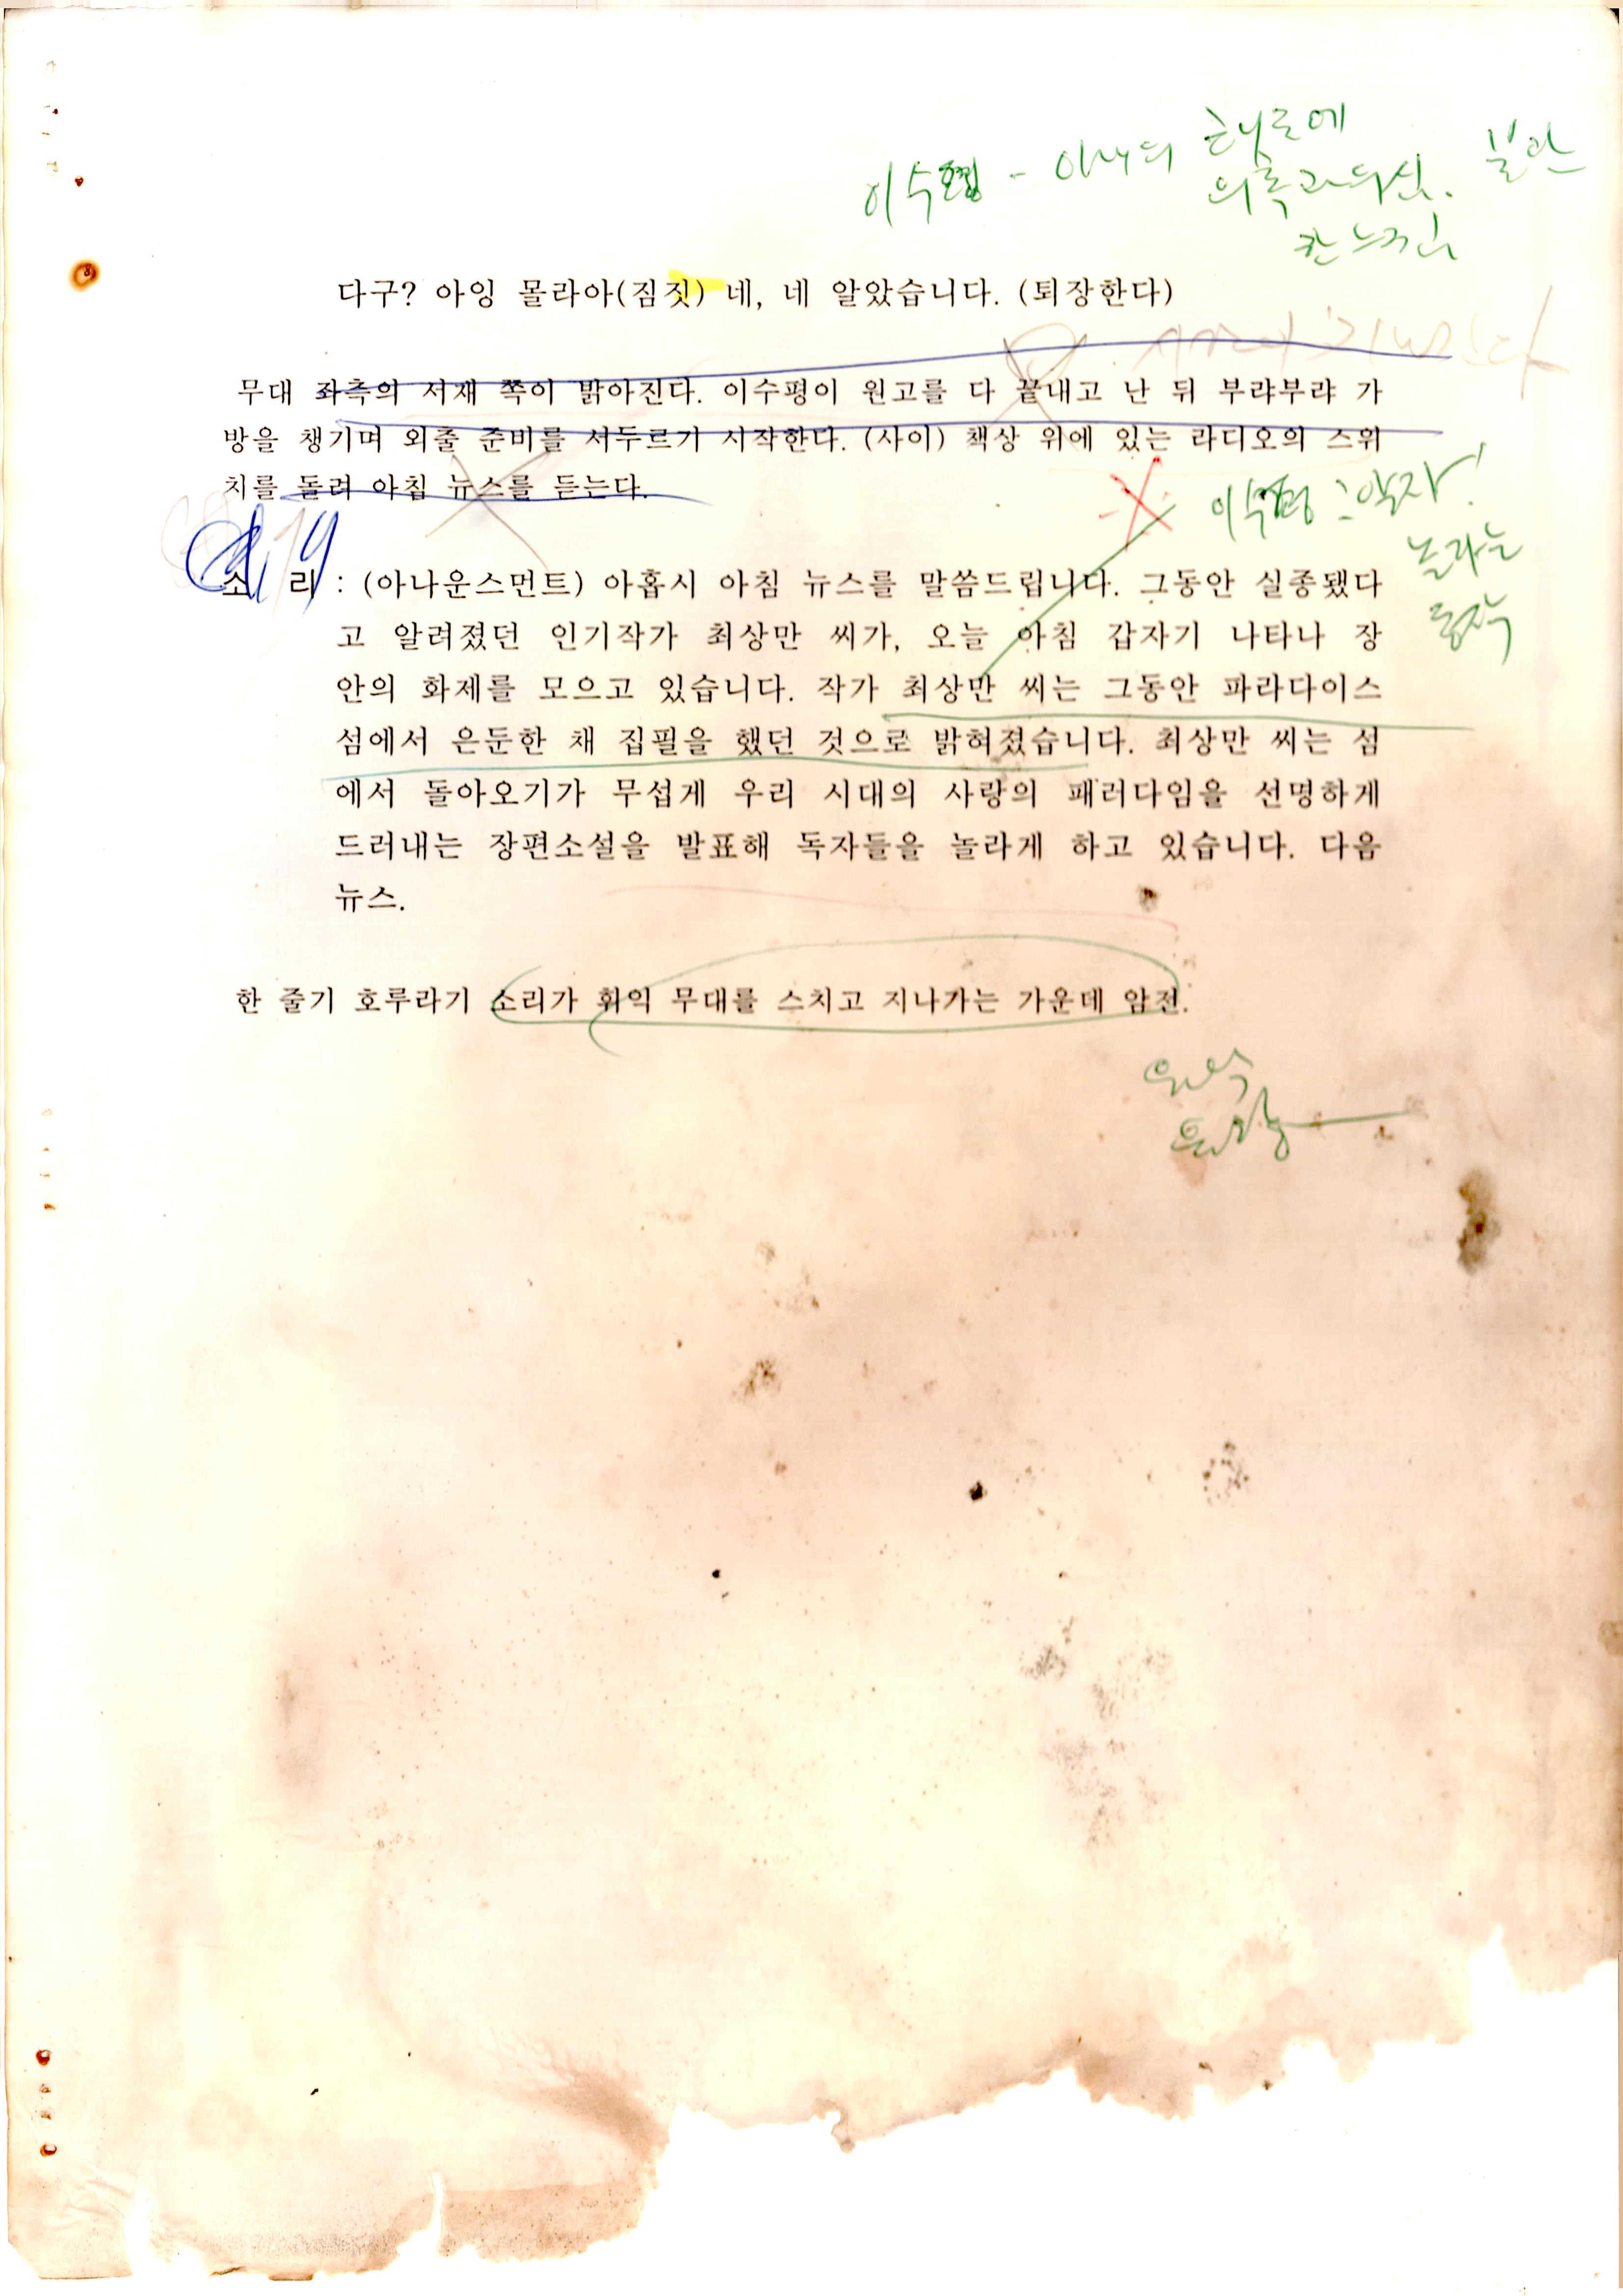 이수평 - 아내의
의혹과 의심.
불안
다구? 아잉 몰라아(짐짓) 네, 네 알았습니다. (퇴장한다)
무대 좌측의 서재 쪽이 밝아진다. 이수평이 원고를 다 끝내고 난 뒤 부랴부랴 가
방을 챙기며 외출 준비를 서두르기 시작한다. (사이) 책상 위에 있는 라디오의 스위
치를 돌려 아침 뉴스를 듣는다.
이수평
놀라는
동작
소 리 : (아나운스먼트) 아홉시 아침 뉴스를 말씀드립니다. 그동안 실종됐다
고 알려졌던 인기작가 최상만 씨가, 오늘 아침 갑자기 나타나 장
안의 화제를 모으고 있습니다. 작가 최상만 씨는 그동안 파라다이스
섬에서 은둔한 채 집필을 했던 것으로 밝혀졌습니다. 최상만 씨는 섬
에서 돌아오기가 무섭게 우리 시대의 사랑의 패러다임을 선명하게
드러내는 장편소설을 발표해 독자들을 놀라게 하고 있습니다. 다음
뉴스.
한 줄기 호루라기 소리가 휘익 무대를 스치고 지나가는 가운데 암전.
퇴장